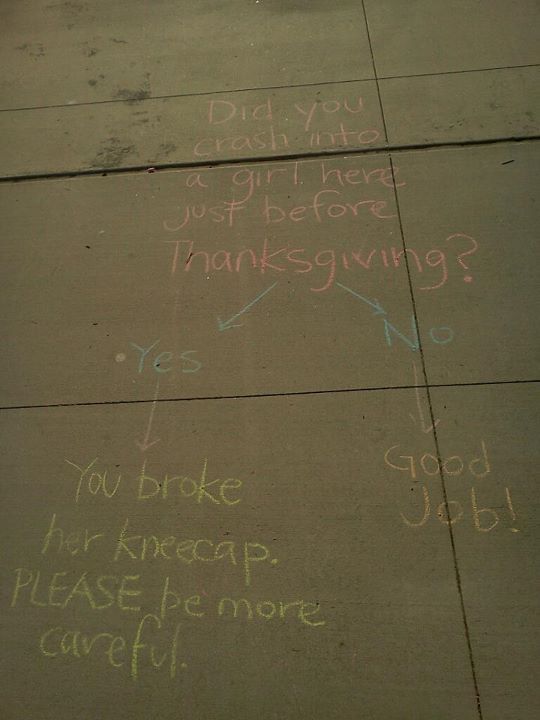 Did you
crash into
a girl here
just before
Thanksgiving?
Yes
No
You broke
her kneecap.
PLEASE be more
careful.
Good
Job!